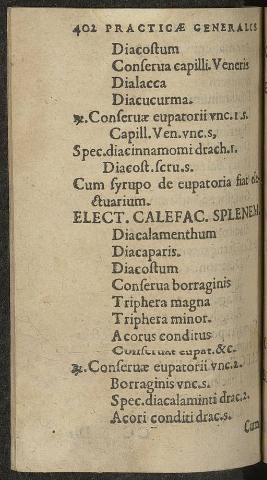 402 PRACTICÆ GENERALIS
Diacostum
Conserua capilli. Veneris
Dialacca
Diacucurma.
℞. Conseruæ eupatorii vnc. 1. s.
Capill. Ven. vnc. s,
Spec. diacinnamomi drach. 1.
Diacost. scru. s.
Cum syrupo de eupatoria fiat ele
ctuarium.
ELECT. CALEFAC. SPLENEM.
Diacalamenthum
Diacaparis.
Diacostum
Conserua borraginis
Triphera magna
Triphera minor.
Acorus conditus
Conseruæ eupat. &c.
℞. Conseruæ eupatorii vnc. 2.
Borraginis vnc. s.
Spec. diacalaminti drac. 2.
Acori conditi drac. s.
Cum